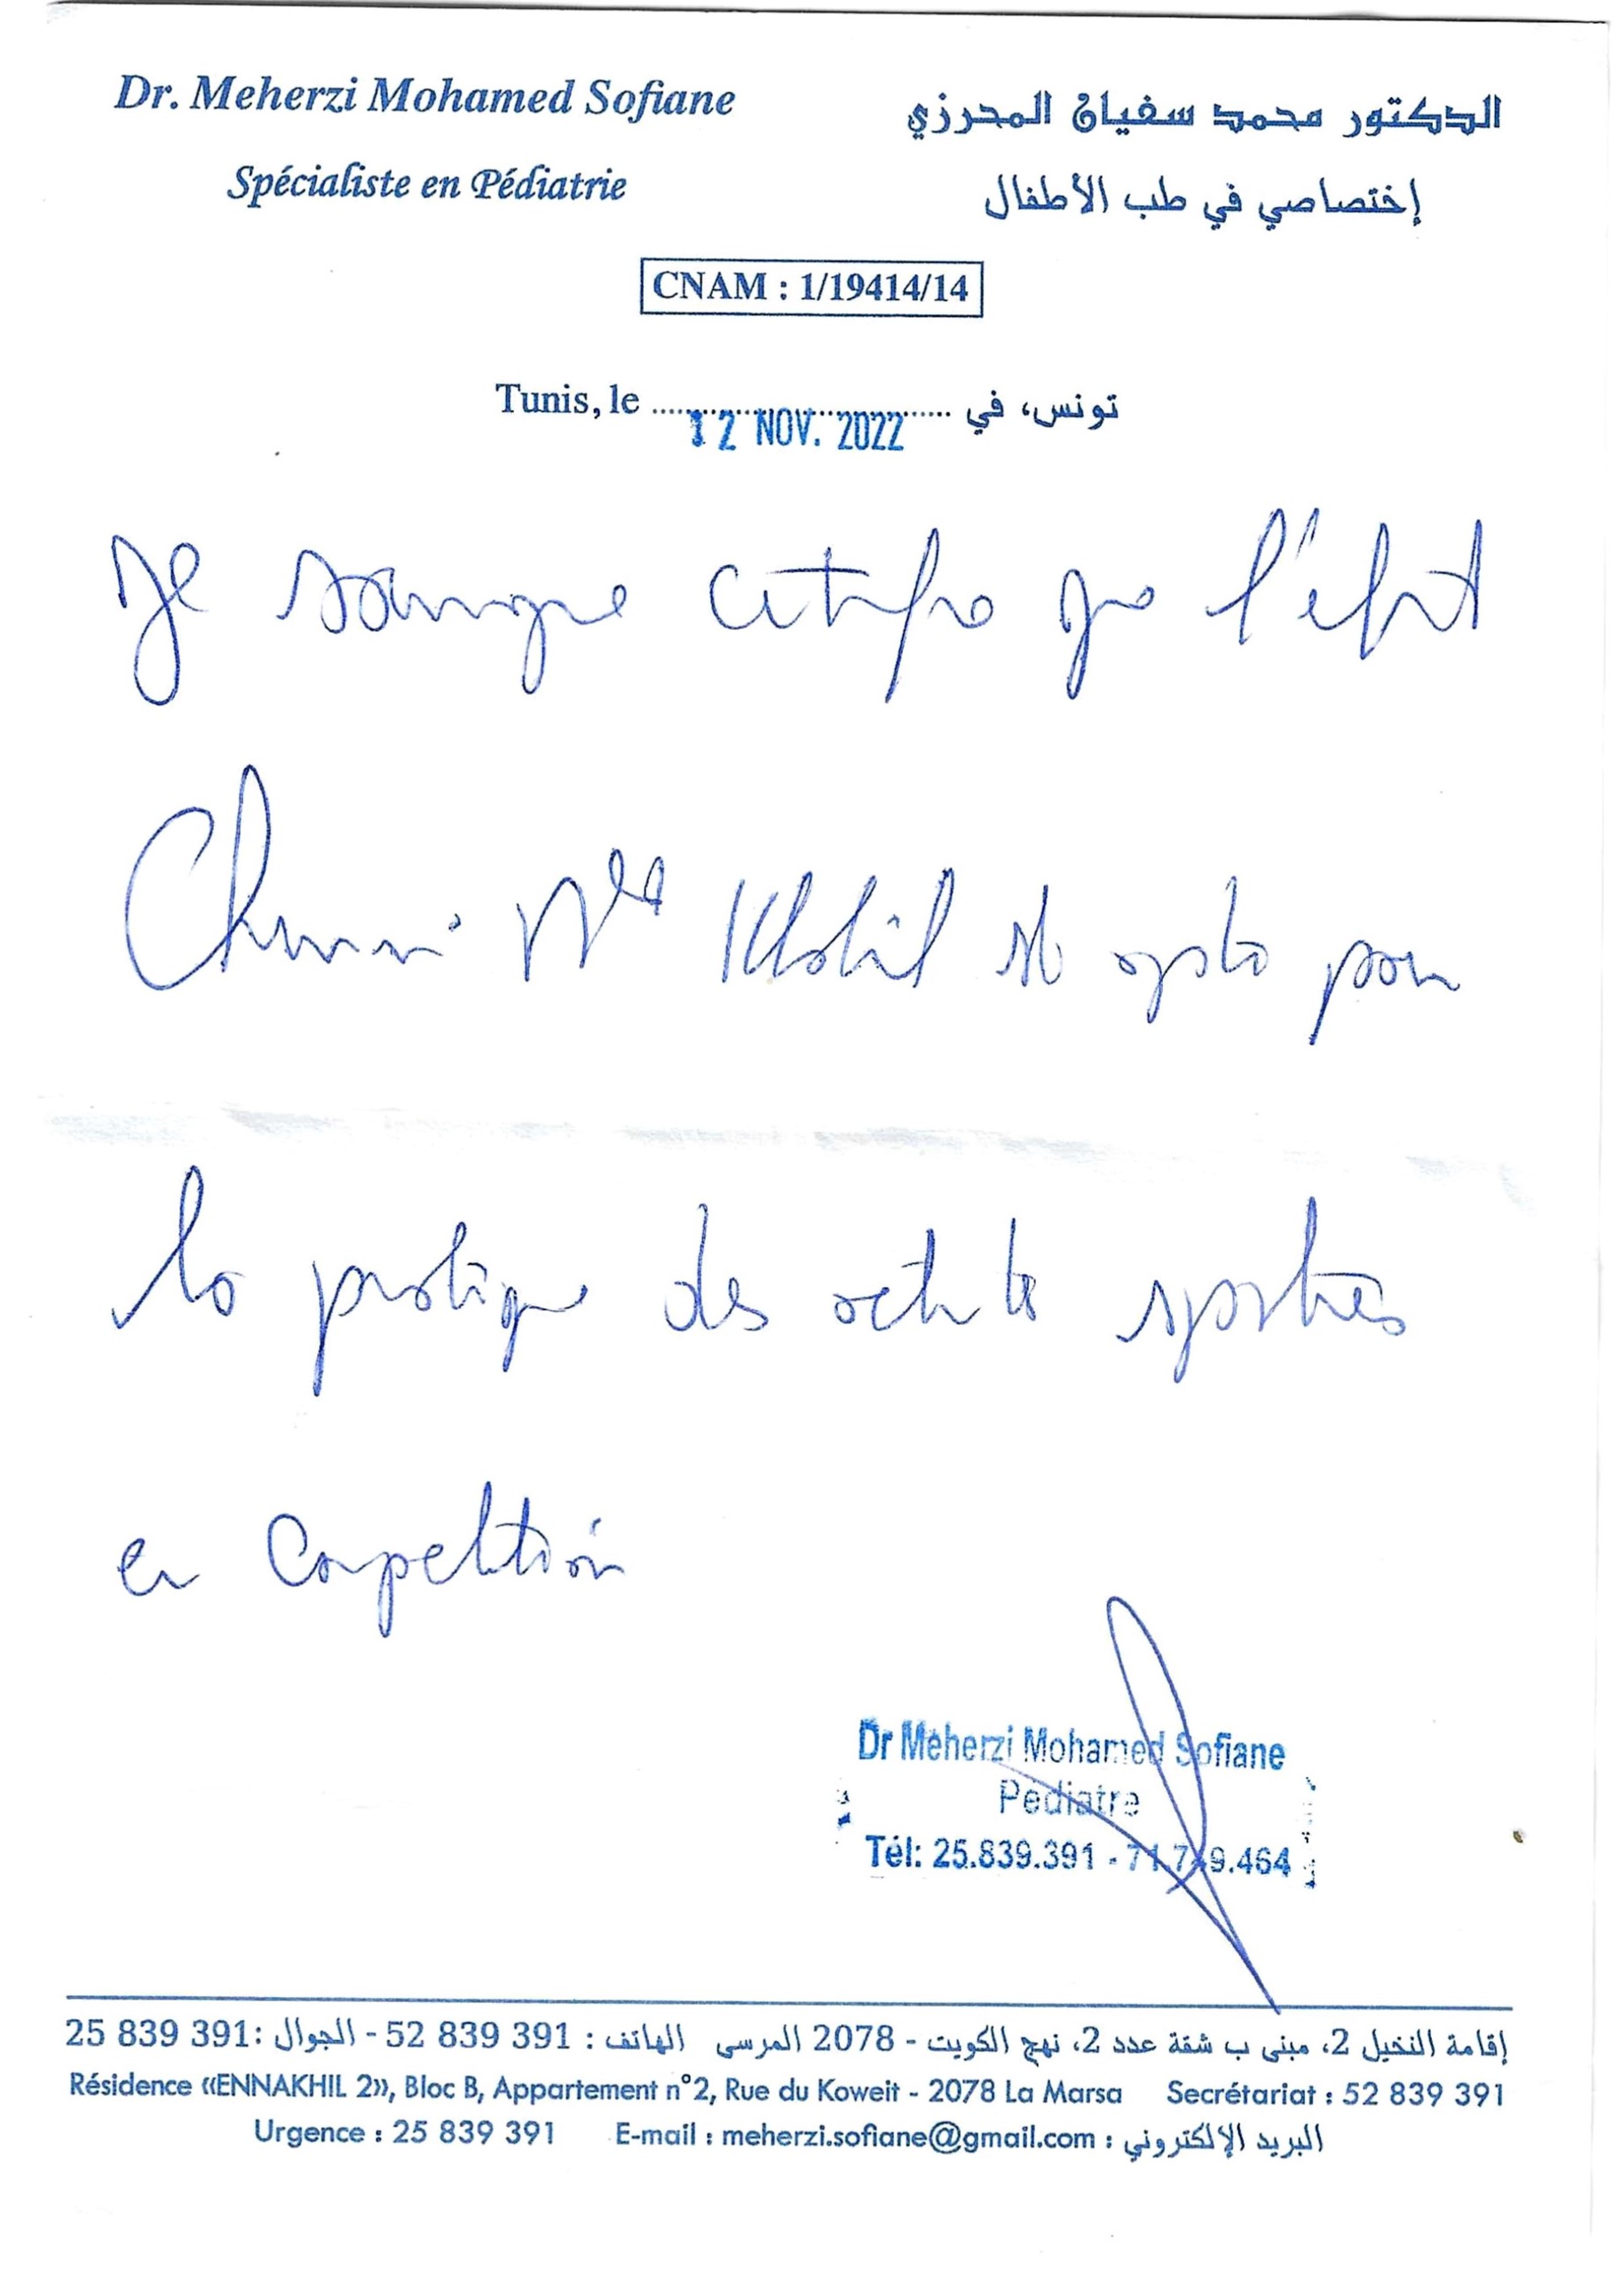 Dr. Meherzi Mohamed Sofiane
الدكتور محمد سفيان المحرزي
Spécialiste en Pédiatrie
إختصاصي في طب الأطفال
CNAM : 1/19414/14
Tunis, le ........................................ تونس، في
12 NOV. 2022
Je soussigné certifie que l'enfant
Khalil apte pour
la pratique des activités sportives
en compétition
Dr Meherzi Mohamed Sofiane
Pédiatre
Tél: 25.839.391 - 71.749.464
إقامة النخيل 2، مبنى ب شقة عدد 2، نهج الكويت - 2078 المرسى الهاتف : 52 839 391 - الجوال : 25 839 391
Résidence «ENNAKHIL 2», Bloc B, Appartement n°2, Rue du Koweit - 2078 La Marsa Secrétariat : 52 839 391
Urgence : 25 839 391 E-mail : meherzi.sofiane@gmail.com : البريد الإلكتروني